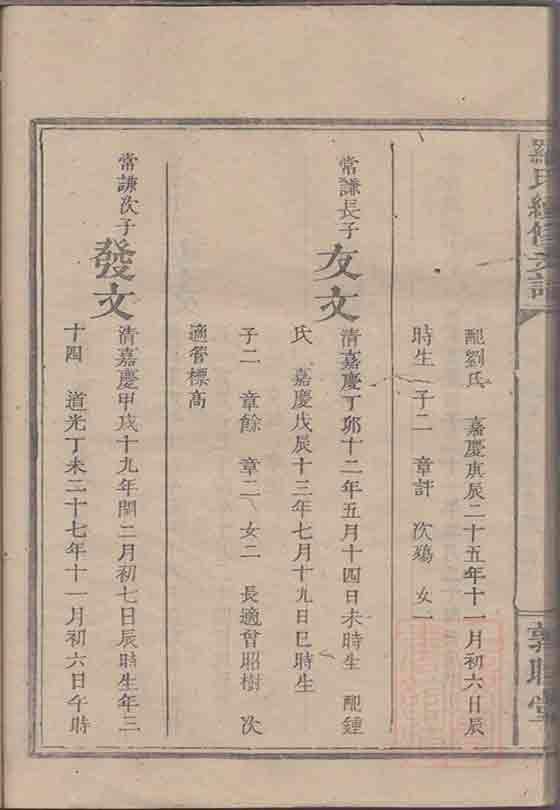 羅氏續修支譜
敦睦堂
配劉氏 嘉慶庚辰二十五年十一月初六日辰
時生 子二 章評 次殤 女一
常謙長子
友文
清嘉慶丁卯十二年五月十四日未時生 配鍾
氏 嘉慶戊辰十三年七月十九日巳時生
子二 章餘 章二 女二 長適曾昭樹 次
適管標高
常謙次子
發文
清嘉慶甲戌十九年閏二月初七日辰時生年三
十四 道光丁未二十七年十一月初六日午時